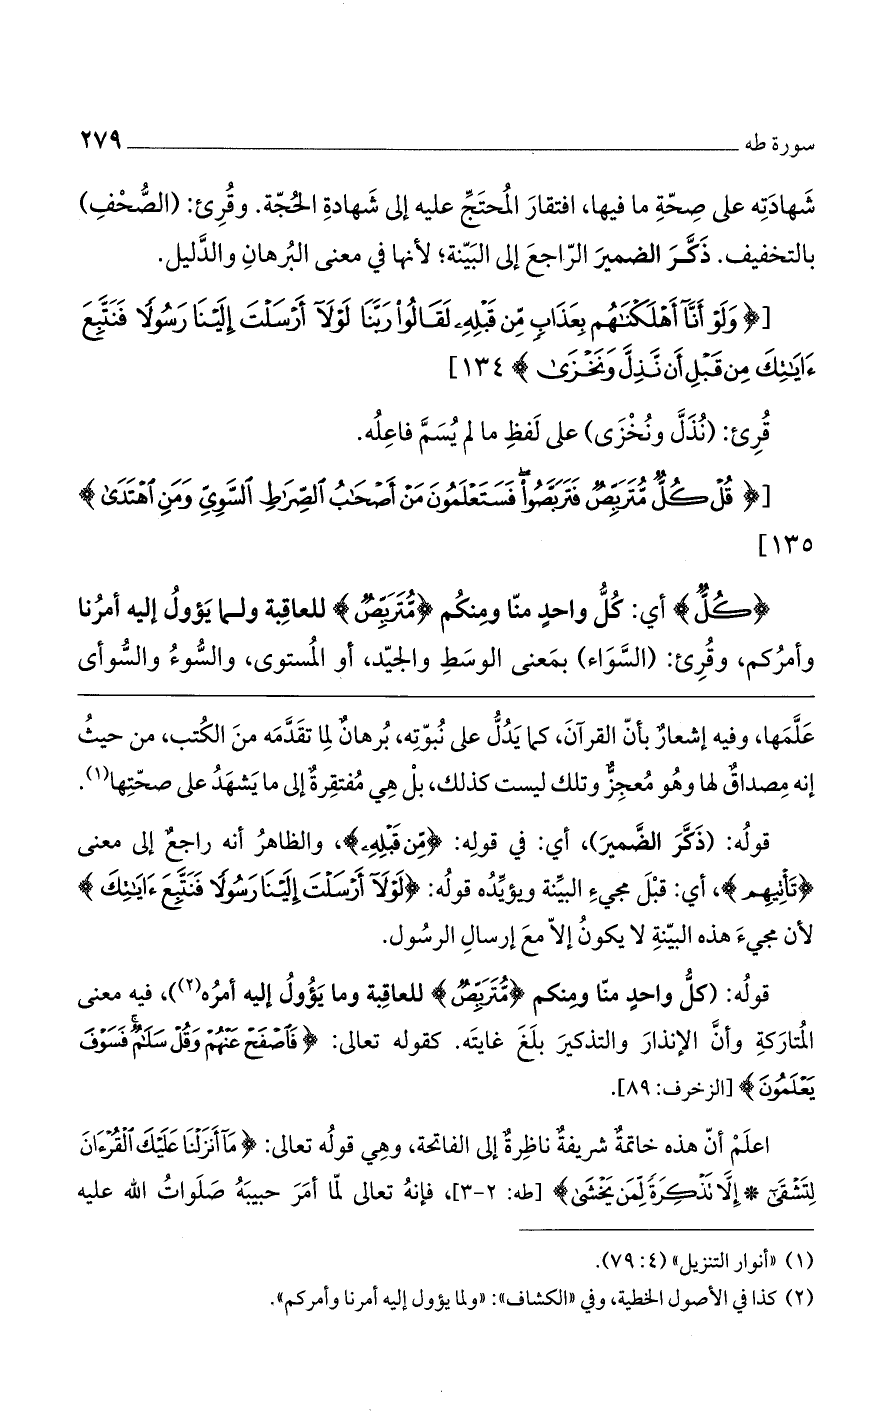 سورة طه ٢٧٩
شَهادَتِه على صِحّةِ ما فيها، افتقارَ المُحتَجِّ عليه إلى شَهادةِ الحُجّة. وقُرِئ: (الصُّحْفِ)
بالتخفيف. ذَكَّرَ الضميرَ الرّاجعَ إلى البَيّنة؛ لأنها في معنى البُرهانِ والدَّليل.
[﴿ وَلَوْ أَنَّآ أَهْلَكْنَٰهُم بِعَذَابٍ مِّن قَبْلِهِۦ لَقَالُوا۟ رَبَّنَا لَوْلَآ أَرْسَلْتَ إِلَيْنَا رَسُولًا فَنَتَّبِعَ
ءَايَٰتِكَ مِن قَبْلِ أَن نَّذِلَّ وَنَخْزَىٰ ﴾ ١٣٤]
قُرِئ: (نُذَلَّ ونُخْزَى) على لَفظِ ما لم يُسَمَّ فاعِلُه.
[﴿ قُلْ كُلٌّ مُّتَرَبِّصٌ فَتَرَبَّصُوا۟ ۖ فَسَتَعْلَمُونَ مَنْ أَصْحَٰبُ ٱلصِّرَٰطِ ٱلسَّوِىِّ وَمَنِ ٱهْتَدَىٰ ﴾
١٣٥]
﴿كُلٌّ﴾ أي: كُلُّ واحدٍ منّا ومِنكُم ﴿مُّتَرَبِّصٌ﴾ للعاقِبة ولـما يَؤولُ إليه أمرُنا
وأمرُكم، وقُرِئ: (السَّوَاء) بمَعنى الوسَطِ والجيّد، أو المُستوى، والسُّوءُ والسُّوأى
عَلَّمَها، وفيه إشعارٌ بأنّ القرآنَ، كما يَدُلُّ على نُبوّتِه، بُرهانٌ لِما تقدَّمَه منَ الكُتب، من حيثُ
إنه مِصداقٌ لها وهُو مُعجِزٌ وتلك ليست كذلك، بلْ هِي مُفتقِرةٌ إلى ما يَشهَدُ على صحّتِها(١).
قولُه: (ذَكَّرَ الضَّميرَ)، أي: في قولِه: ﴿مِّن قَبْلِهِۦ﴾، والظاهرُ أنه راجعٌ إلى معنى
﴿تَأْتِيهِم﴾، أي: قبْلَ مجيءِ البيِّنة ويؤيِّدُه قولُه: ﴿لَوْلَآ أَرْسَلْتَ إِلَيْنَا رَسُولًا فَنَتَّبِعَ ءَايَٰتِكَ ﴾
لأن مجيءَ هذه البيّنةِ لا يكونُ إلاّ معَ إرسالِ الرسُول.
قولُه: (كلُّ واحدٍ منّا ومِنكم ﴿مُّتَرَبِّصٌ﴾ للعاقِبة وما يَؤُولُ إليه أمرُه(٢))، فيه معنى
المُتارَكةِ وأنَّ الإنذارَ والتذكيرَ بلَغَ غايتَه. كقوله تعالى: ﴿ فَٱصْفَحْ عَنْهُمْ وَقُلْ سَلَٰمٌ ۚ فَسَوْفَ
يَعْلَمُونَ ﴾ [الزخرف: ٨٩].
اعلَمْ أنّ هذه خاتمةٌ شريفةٌ ناظِرةٌ إلى الفاتحة، وهِي قولُه تعالى: ﴿ مَآ أَنزَلْنَا عَلَيْكَ ٱلْقُرْءَانَ
لِتَشْقَىٰٓ * إِلَّا تَذْكِرَةً لِّمَن يَخْشَىٰ﴾ [طه: ٢-٣]، فإنهُ تعالى لمّا أمَرَ حبيبَهُ صَلَواتُ الله عليه
(١) «أنوار التنزيل» (٤: ٧٩).
(٢) كذا في الأصول الخطية، وفي «الكشاف»: «ولما يؤول إليه أمرنا وأمركم».